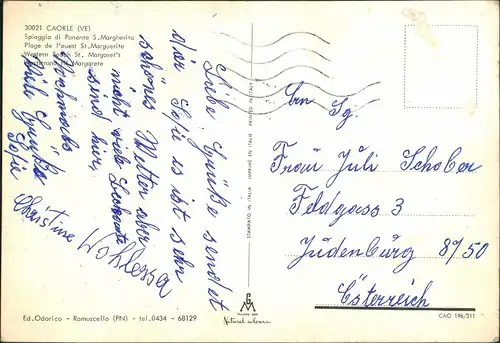 30021 CAORLE (VE)
Spiaggia di Ponente S. Margherita
Plage de l'ouest St. Marguerite
Western Beach St. Margaret's
Margarete
Liebe Grüße sendet
dir Sofie es ist sehr
schönes Wetter aber
nicht viele
sind hier,
Nochmals
viele Grüße
Sofie
Christine
STAMPATO IN ITALY - IMPRIMÉ EN ITALIE - PRINTED IN ITALY
GM
MILANO
Natural colour
An Sg.
Frau Juli Schober
Feldgasse 3
Judenburg 8750
Österreich
Ed. Odorico - Ramuscello (PN) - tel. 0434 - 68129
CAO 196/211